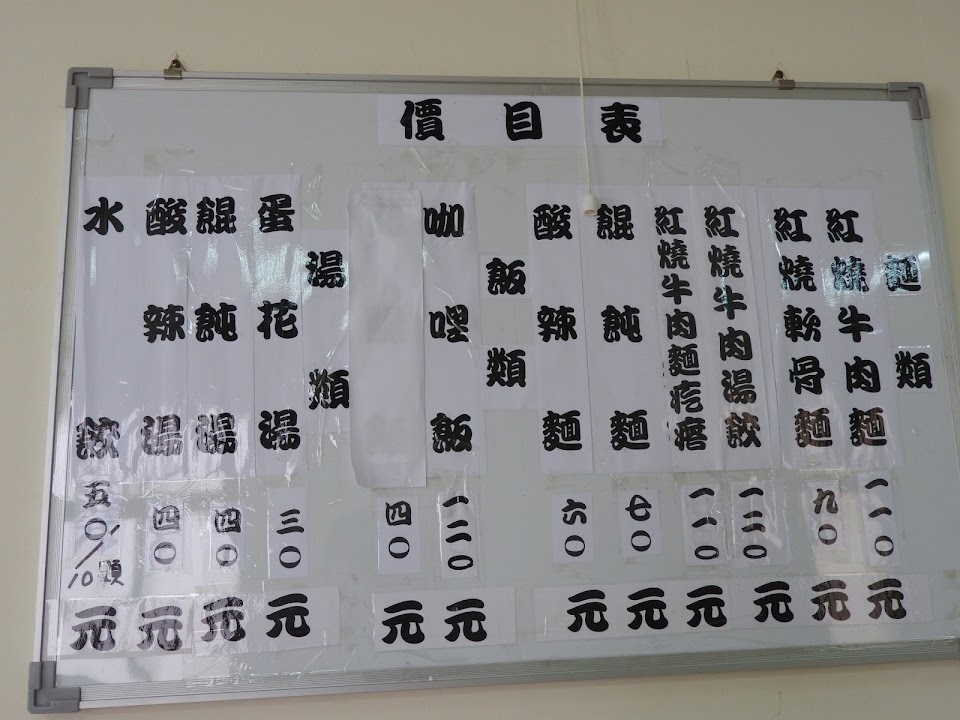 價目表
麵類
紅燒牛肉麵一一〇元
紅燒軟骨麵九〇元
紅燒牛肉湯餃一二〇元
紅燒牛肉麵疙瘩一一〇元
餛飩麵七〇元
酸辣麵六〇元
飯類
咖哩飯一二〇元
四〇元
湯類
蛋花湯三〇元
餛飩湯四〇元
酸辣湯四〇元
水餃五〇/10顆元